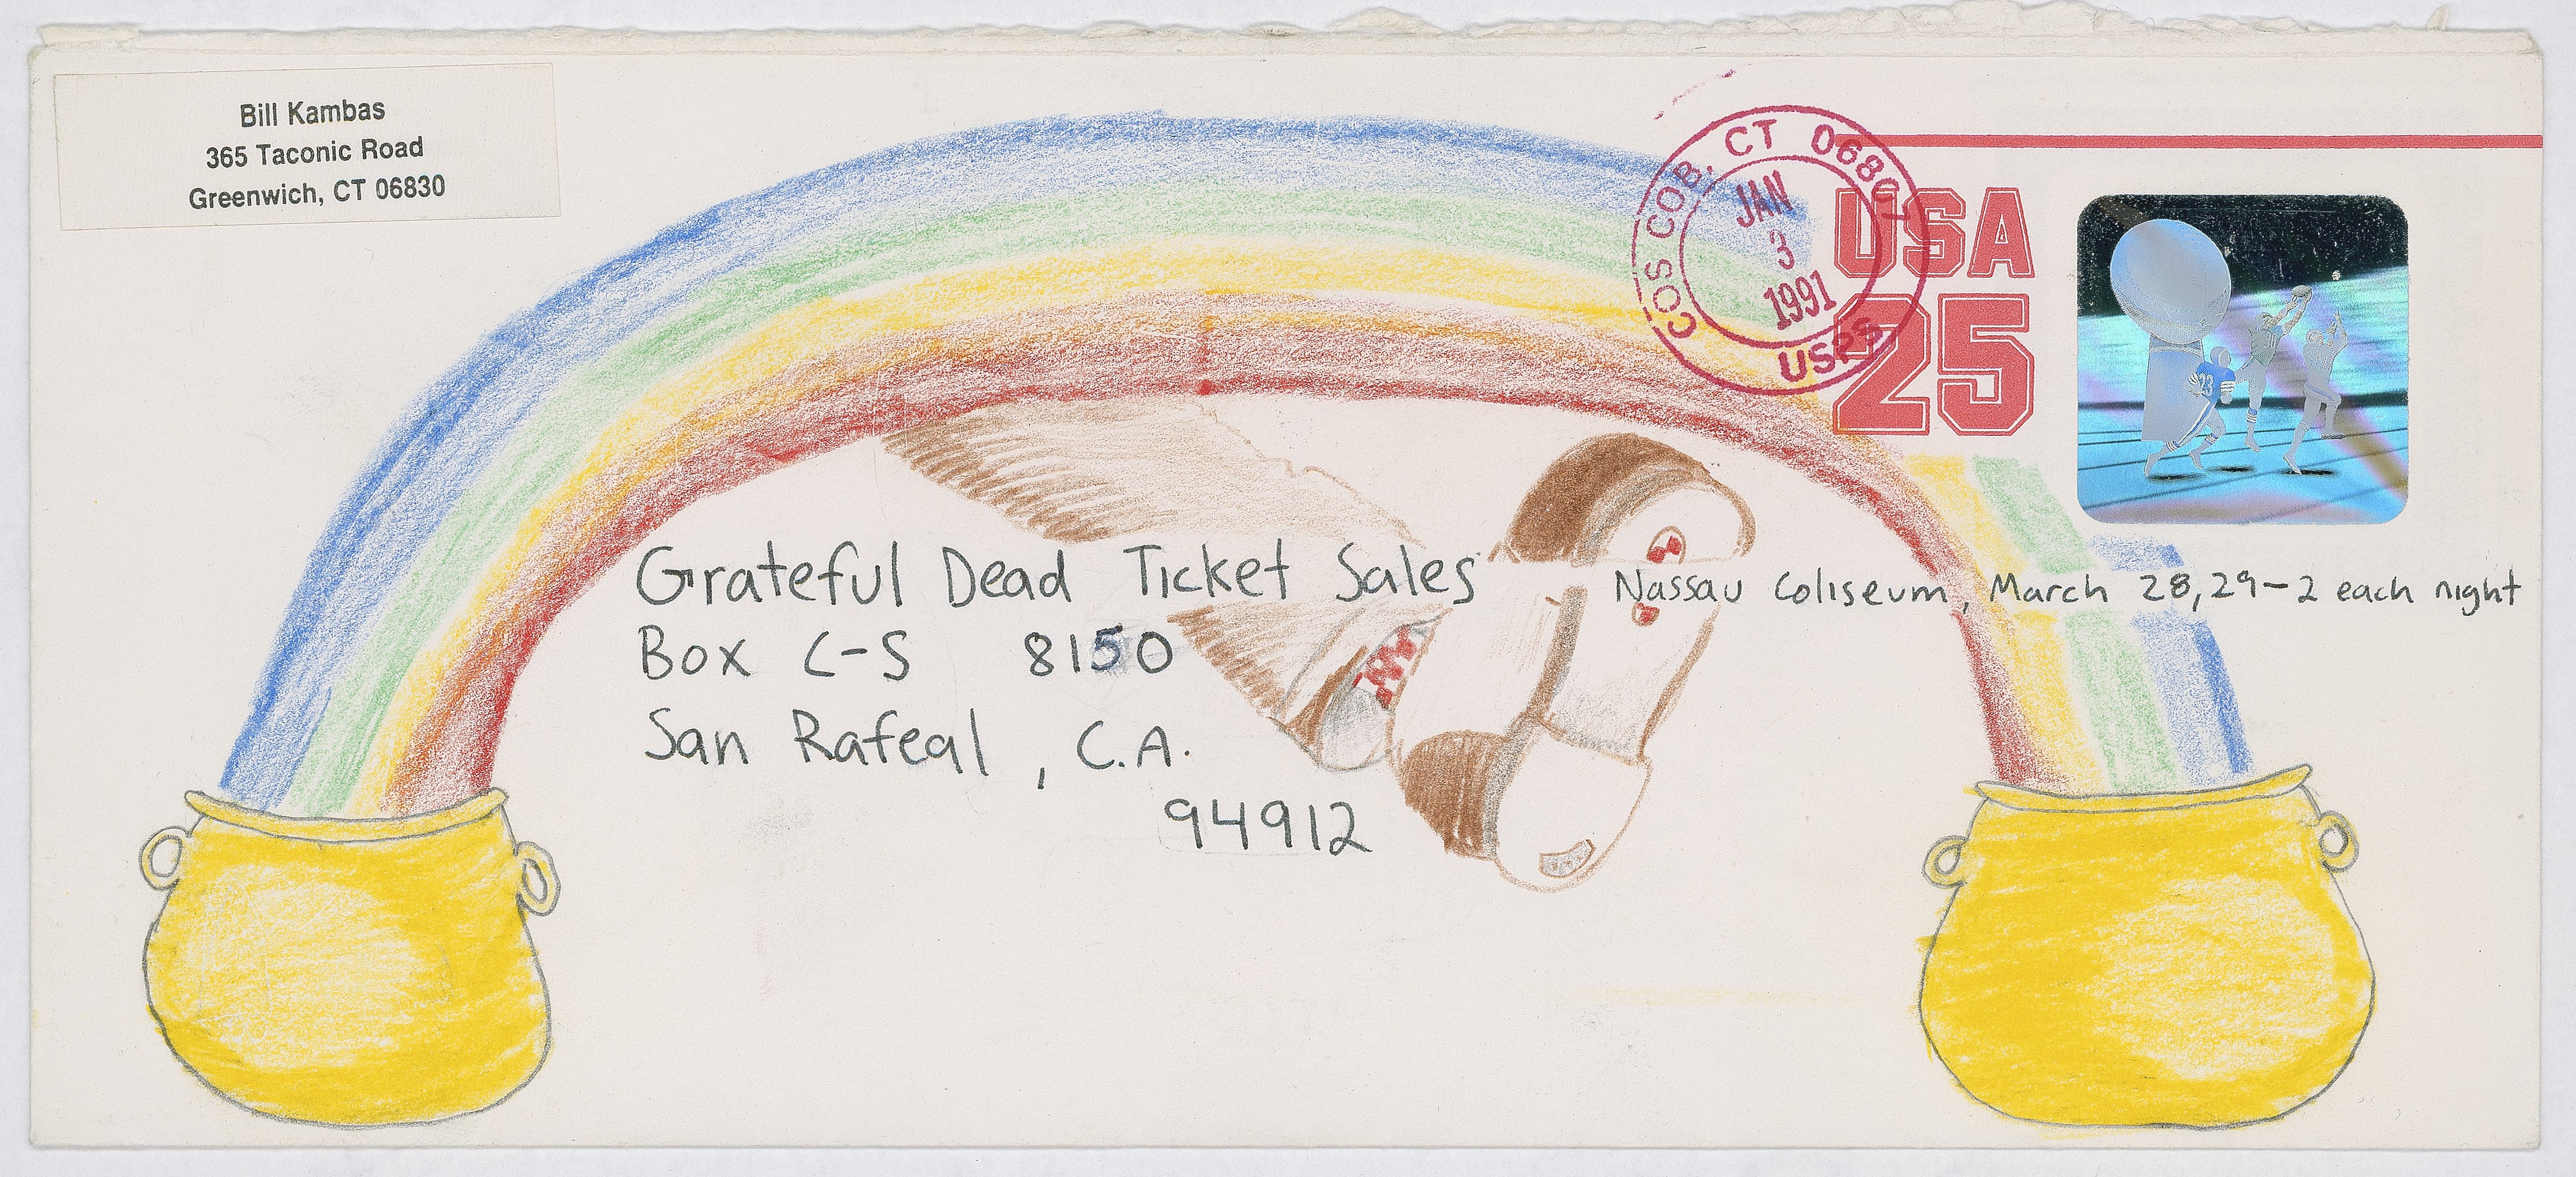 Bill Kambas
365 Taconic Road
Greenwich, CT 06830
COS COB, CT 06807
JAN
3
1991
USPS
USA
25
23
Grateful Dead Ticket Sales
Nassau Coliseum, March 28,29-2 each night
Box C-S 8150
San Rafeal, C.A.
94912